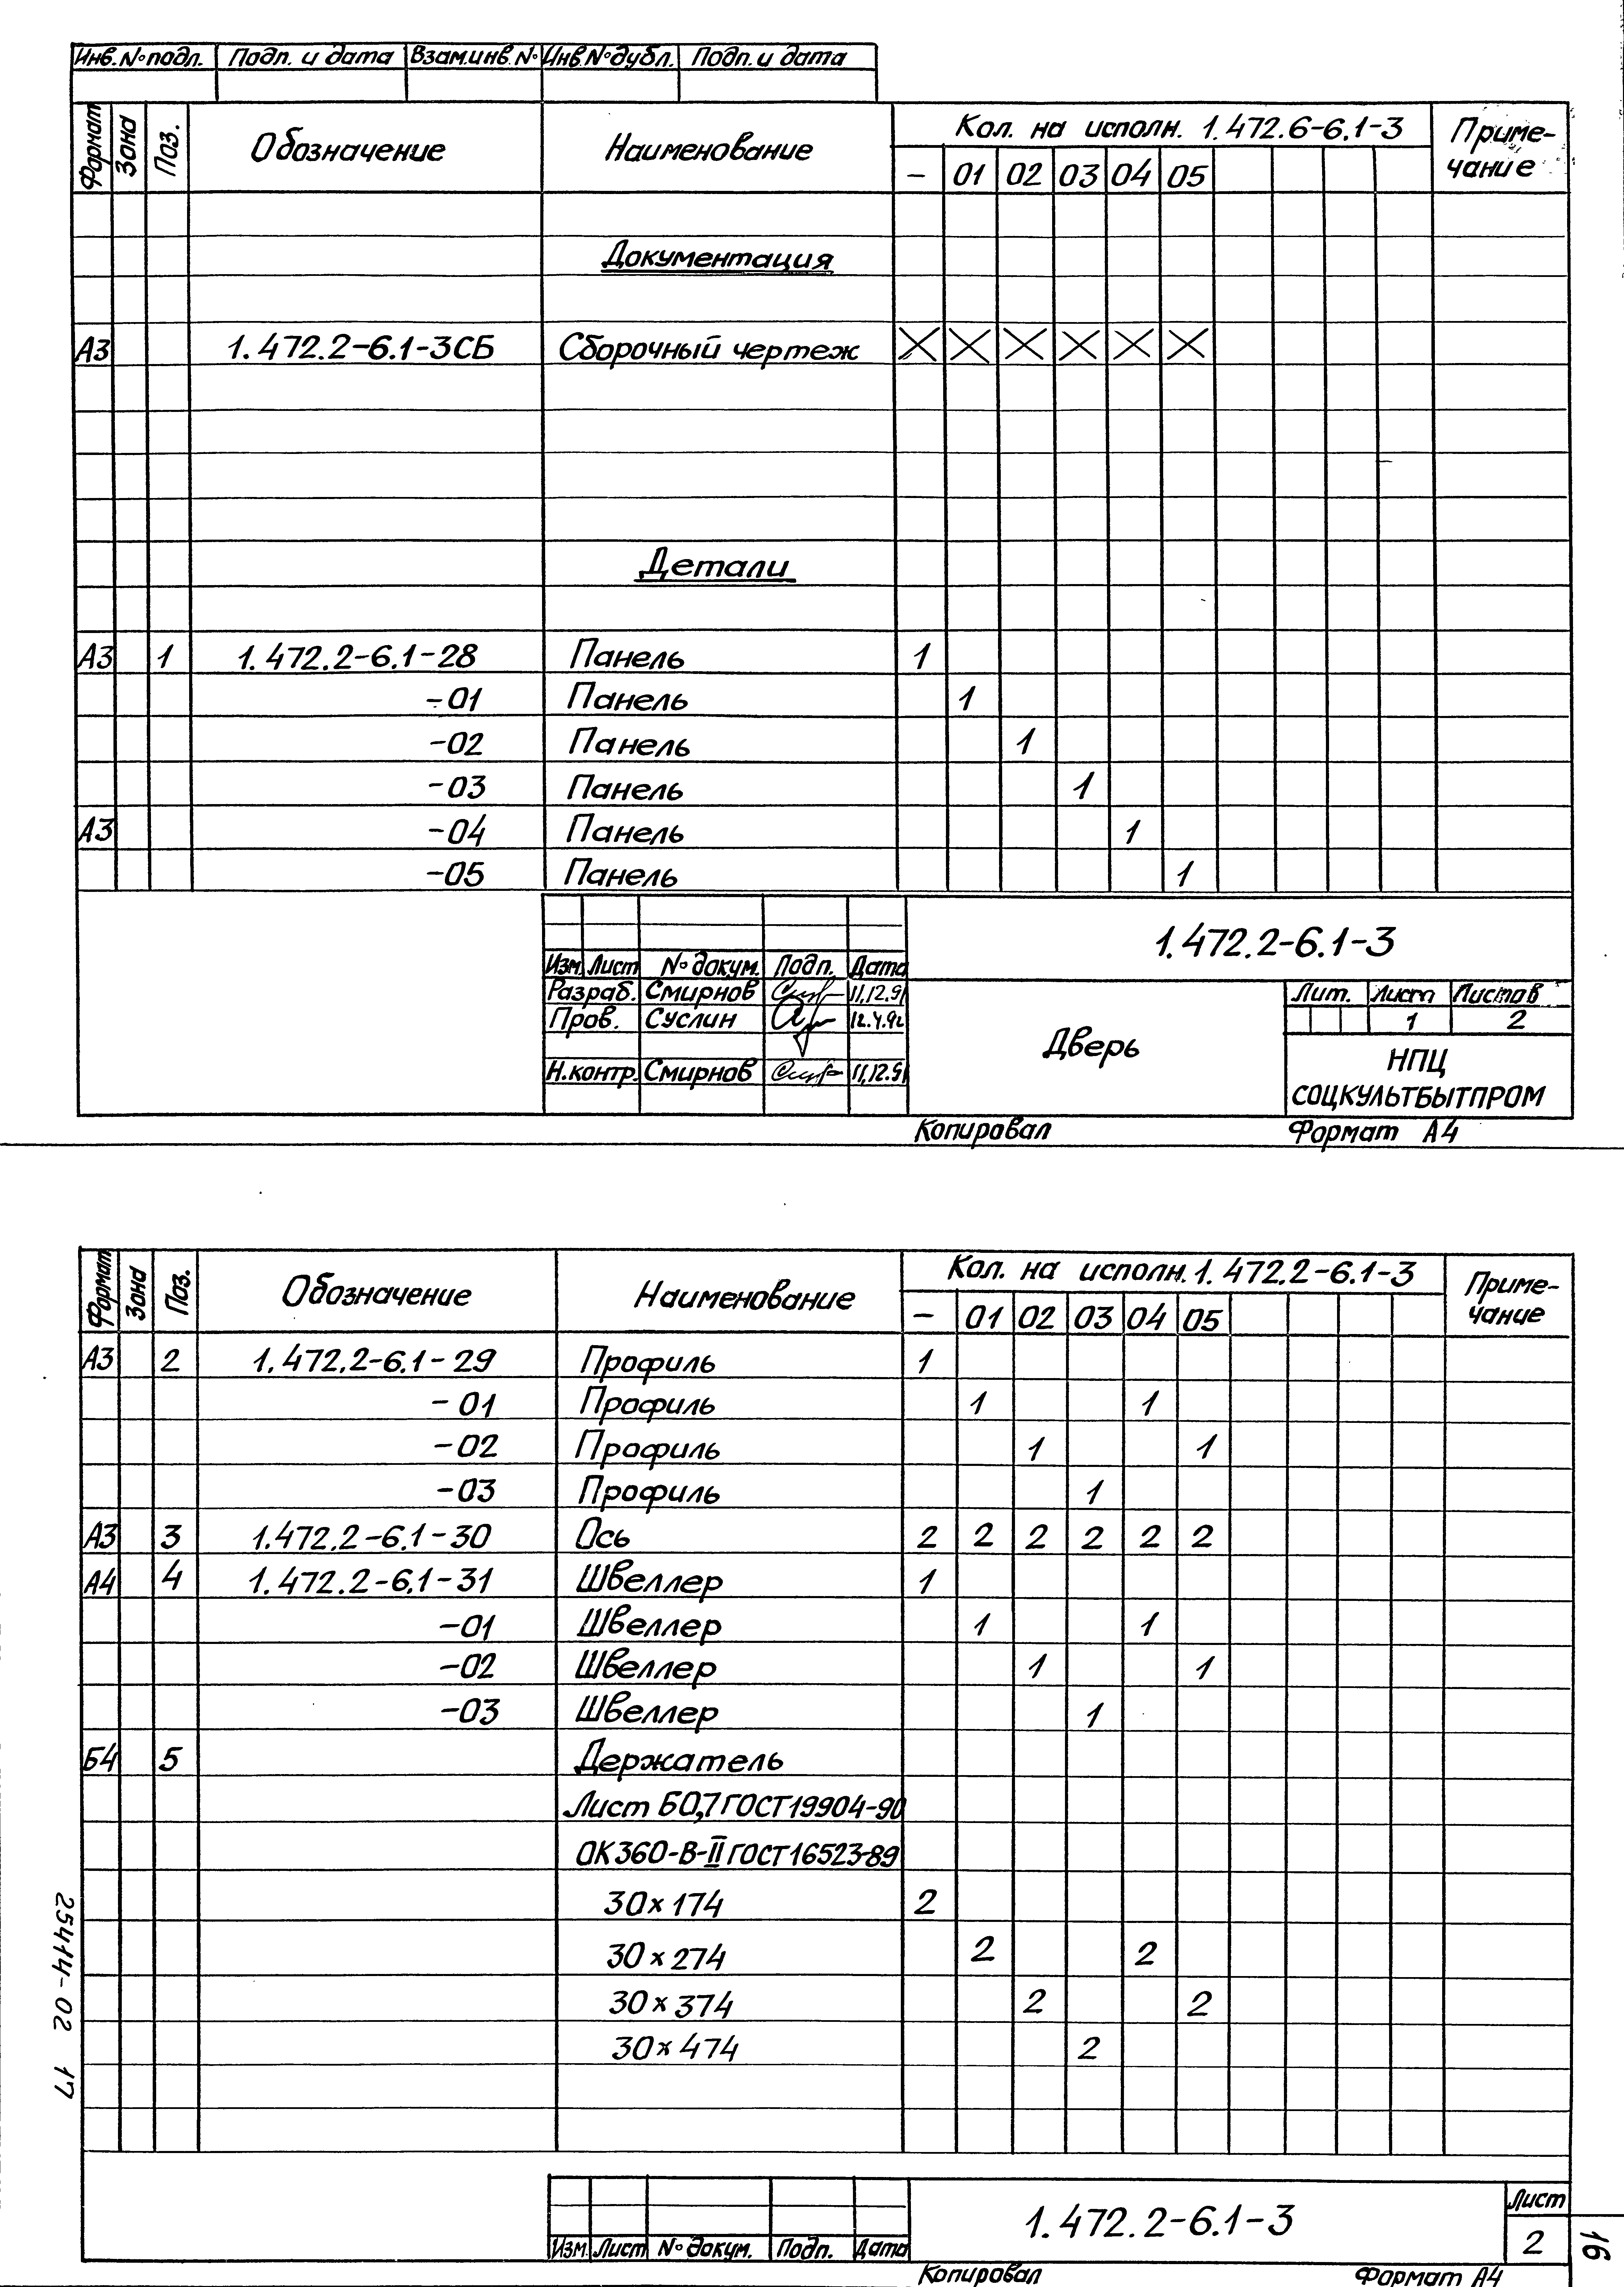 Инв.№подл. Подп. и дата Взам.инв.№ Инв.№дубл. Подп. и дата
Формат Зона Поз. Обозначение Наименование Кол. на исполн. 1.472.6-6.1-3 Приме-
чание
- 01 02 03 04 05
Документация
А3 1.472.2-6.1-3СБ Сборочный чертеж X X X X X X
Детали
А3 1 1.472.2-6.1-28 Панель 1
-01 Панель 1
-02 Панель 1
-03 Панель 1
А3 -04 Панель 1
-05 Панель 1
1.472.2-6.1-3
Изм Лист №докум. Подп. Дата
Разраб. Смирнов 11.12.91
Пров. Суслин 12.4.92
Н.контр. Смирнов 11.12.91
Дверь
Лит. Лист Листов
1 2
НПЦ
СОЦКУЛЬТБЫТПРОМ
Копировал Формат А4
Формат Зона Поз. Обозначение Наименование Кол. на исполн. 1.472.2-6.1-3 Приме-
чание
- 01 02 03 04 05
А3 2 1.472.2-6.1-29 Профиль 1
-01 Профиль 1 1
-02 Профиль 1 1
-03 Профиль 1
А3 3 1.472.2-6.1-30 Ось 2 2 2 2 2 2
А4 4 1.472.2-6.1-31 Швеллер 1
-01 Швеллер 1 1
-02 Швеллер 1 1
-03 Швеллер 1
Б4 5 Держатель
Лист Б0,7 ГОСТ19904-90
ОК360-В-II ГОСТ16523-89
30×174 2
30×274 2 2
30×374 2 2
30×474 2
25414-02 17
1.472.2-6.1-3
Лист
2
Изм. Лист № докум. Подп. Дата
Копировал Формат А4
16